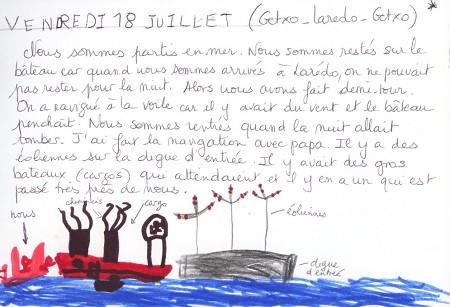 VENDREDI 18 JUILLET (Getxo-Laredo-Getxo)
Nous sommes partis en mer. Nous sommes restés sur le
bâteau car quand nous sommes arrivés à Larédo, on ne pouvait
pas rester pour la nuit. Alors nous avons fait demi-tour.
On a navigué à la voile car il y avait du vent et le bâteau
penchait. Nous sommes rentrés quand la nuit allait
tomber. J'ai fait la navigation avec papa. Il y a des
éoliennes sur la digue d'entrée. Il y avait des gros
bateaux (cargos) qui attendaient et il y en a un qui est
passé très près de nous.
nous
cheminées
cargo
éoliennes
digue
d'entrée